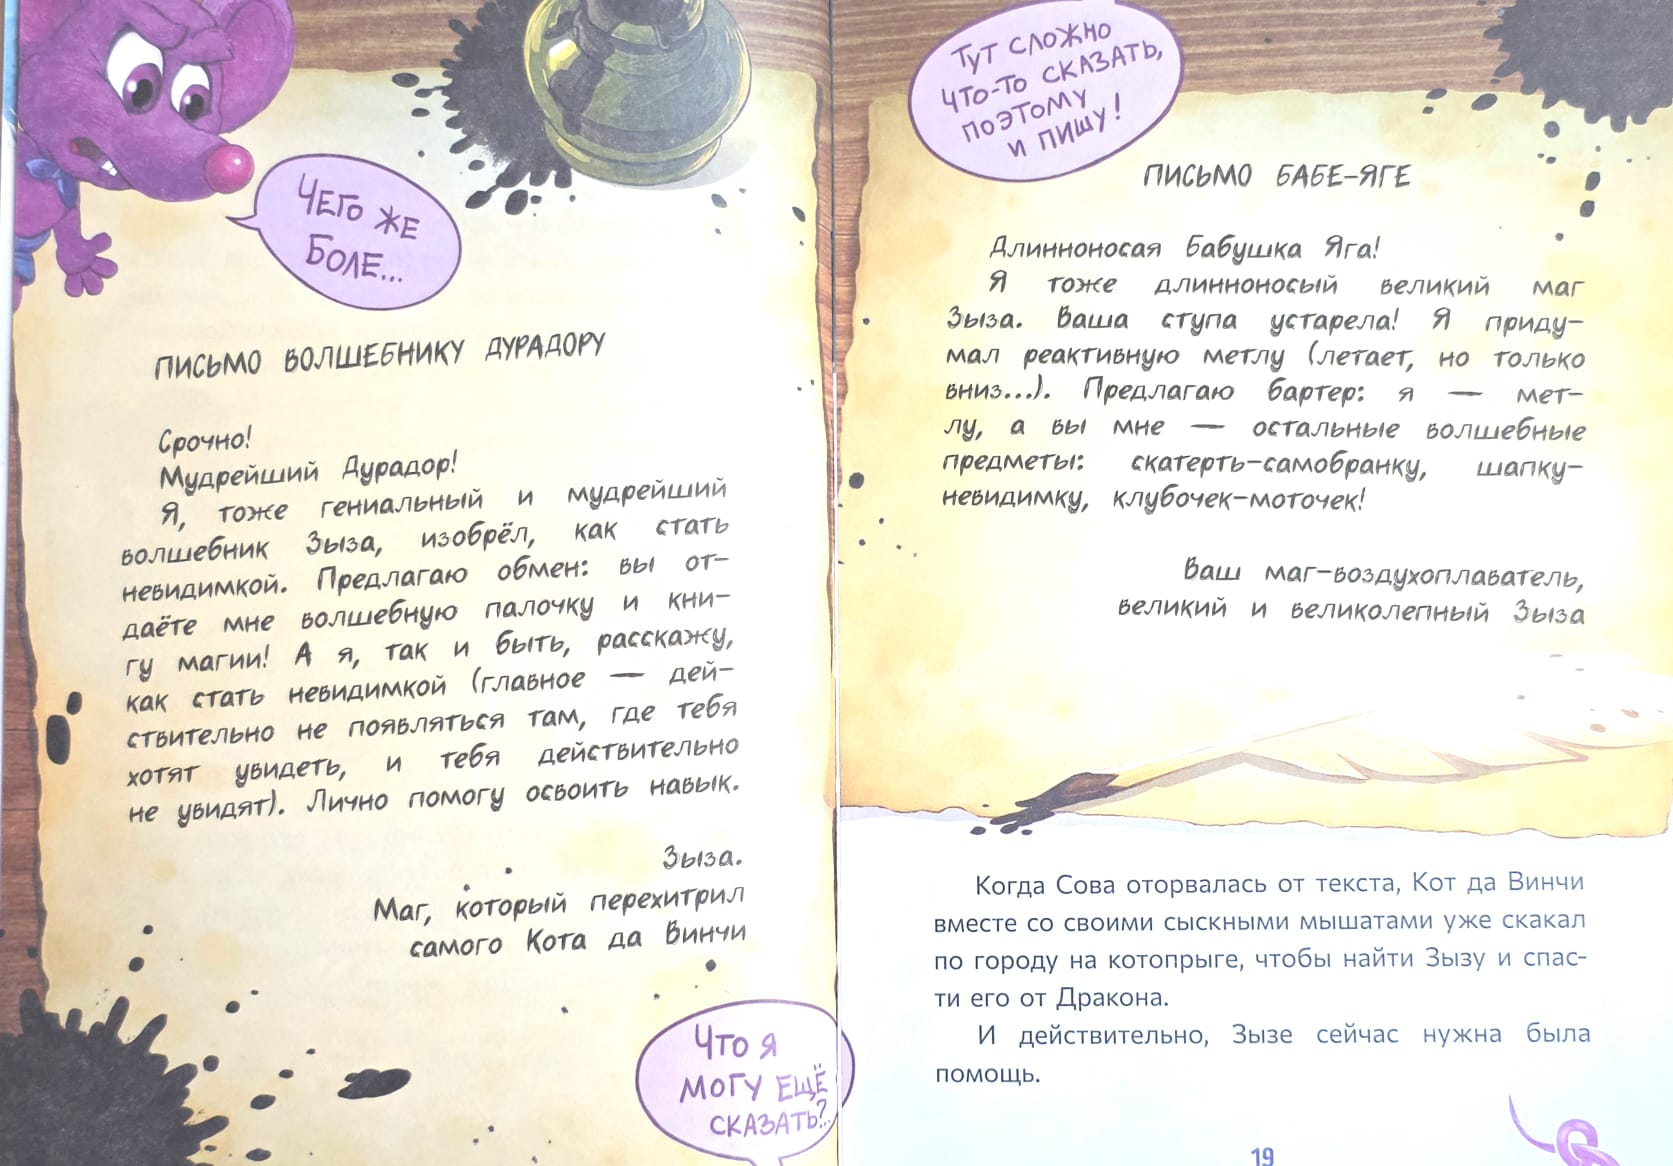 ЧЕГО ЖЕ
БОЛЕ...
ПИСЬМО ВОЛШЕБНИКУ ДУРАДОРУ
Срочно!
Мудрейший Дурадор!
Я, тоже гениальный и мудрейший
волшебник Зыза, изобрёл, как стать
невидимкой. Предлагаю обмен: вы от-
даёте мне волшебную палочку и кни-
гу магии! А я, так и быть, расскажу,
как стать невидимкой (главное — дей-
ствительно не появляться там, где тебя
хотят увидеть, и тебя действительно
не увидят). Лично помогу освоить навык.
Зыза.
Маг, который перехитрил
самого Кота да Винчи
ЧТО Я
МОГУ ЕЩЁ
СКАЗАТЬ?..
ТУТ СЛОЖНО
ЧТО-ТО СКАЗАТЬ,
ПОЭТОМУ
И ПИШУ!
ПИСЬМО БАБЕ-ЯГЕ
Длинноносая Бабушка Яга!
Я тоже длинноносый великий маг
Зыза. Ваша ступа устарела! Я приду-
мал реактивную метлу (летает, но только
вниз...). Предлагаю бартер: я — мет-
лу, а вы мне — остальные волшебные
предметы: скатерть-самобранку, шапку-
невидимку, клубочек-моточек!
Ваш маг-воздухоплаватель,
великий и великолепный Зыза
Когда Сова оторвалась от текста, Кот да Винчи
вместе со своими сыскными мышатами уже скакал
по городу на котопрыге, чтобы найти Зызу и спас-
ти его от Дракона.
И действительно, Зызе сейчас нужна была
помощь.
19